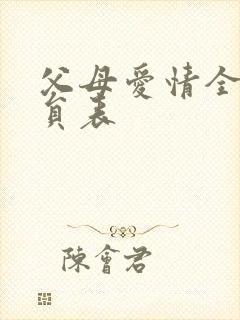 父母愛情全
員表
陳會君